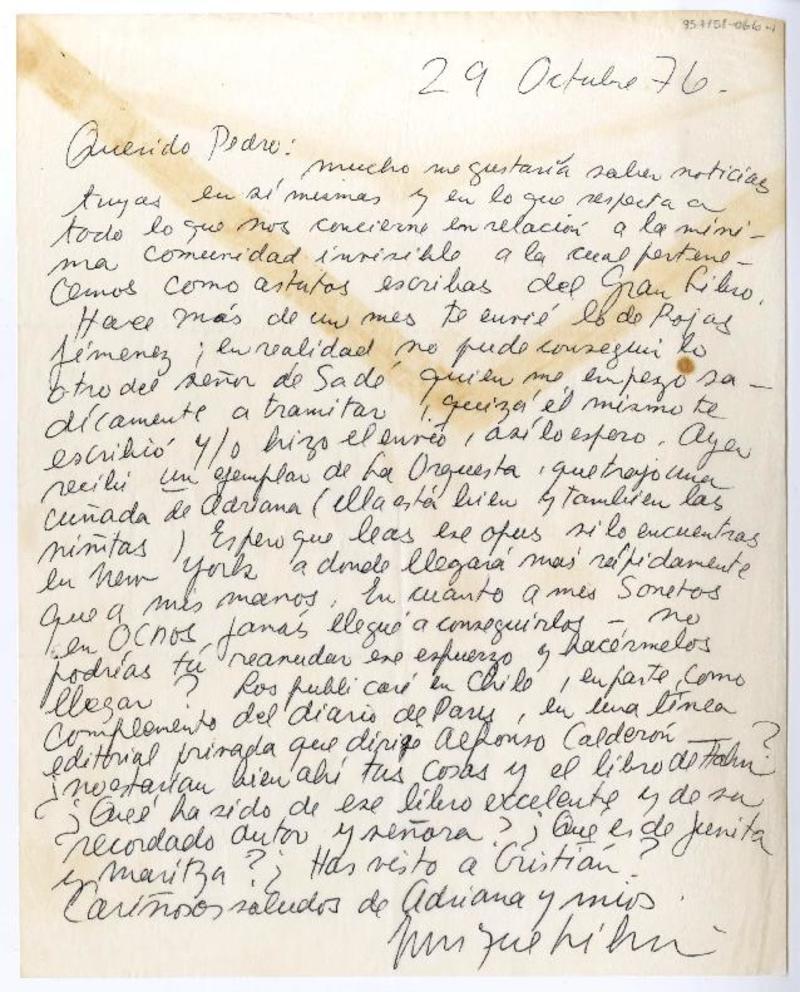 957151-066-1
29 Octubre 76.
Querido Pedro:
mucho me gustaría saber noticias
tuyas en sí mismas y en lo que respecta a
todo lo que nos concierne en relación a la míni-
ma comunidad invisible a la cual pertene-
cemos como astutos escribas del Gran Libro.
Hace más de un mes te envié lo de Rojas
Jiménez; en realidad no pude conseguir lo
otro del señor de Sade quien me empezó sa-
dícamente a tramitar, quizá él mismo te
escribió y/o hizo el envío, así lo espero. Ayer
recibí un ejemplar de La Orquesta, que trajo una
cuñada de Adriana (ella está bien y también las
niñitas) Espero que leas ese opus si lo encuentras
en New York a donde llegará más rápidamente
que a mis manos. En cuanto a mis Sonetos
en OCNOS jamás llegué a conseguirlos - no
podrías tú reanudar ese esfuerzo y hacérmelos
llegar? Los publicaré en Chile, en parte, como
complemento del diario de París, en una línea
editorial privada que dirige Alfonso Calderón —
¿no estarían bien ahí tus cosas y el libro de Hahn?
¿Qué ha sido de ese libro excelente y de su
recordado autor y señora? ¿Qué es de Junita
y Maritza? ¿Has visto a Cristián?
Cariñosos saludos de Adriana y míos.
Enrique Lihn